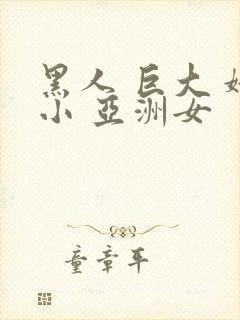 黑人 巨大 
小 亞洲女
童章平